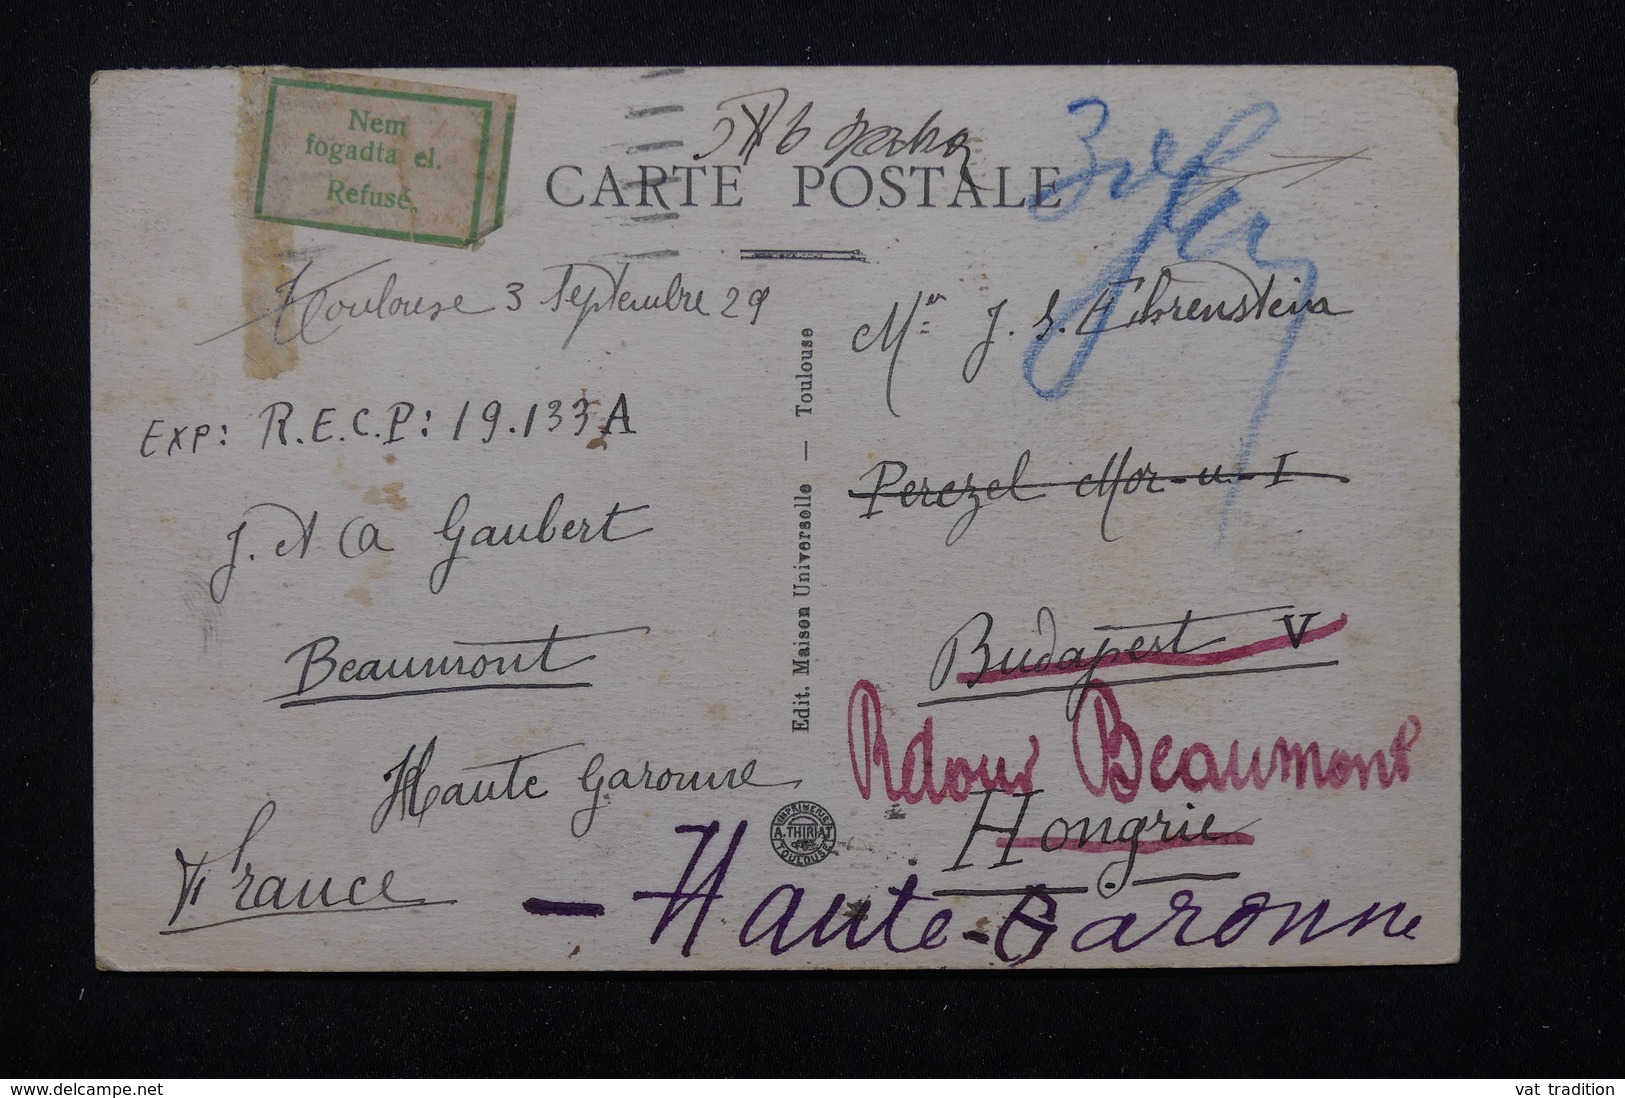 Nem
fogadta el.
Refusé.
CARTE POSTALE
Toulouse 3 Septembre 29
EXP: R.E.C.P: 19.133A
J. A Gaubert
Beaumont
Haute Garonne
France
Edit. Maison Universelle — Toulouse
IMPRIMERIE
A. THIRIAT
TOULOUSE
Mr J. S. Ehrenstein
Perezel Mor-u-I
Budapest V
Retour Beaumont
Hongrie
- Haute-Garonne
www.delcampe.net
vat tradition